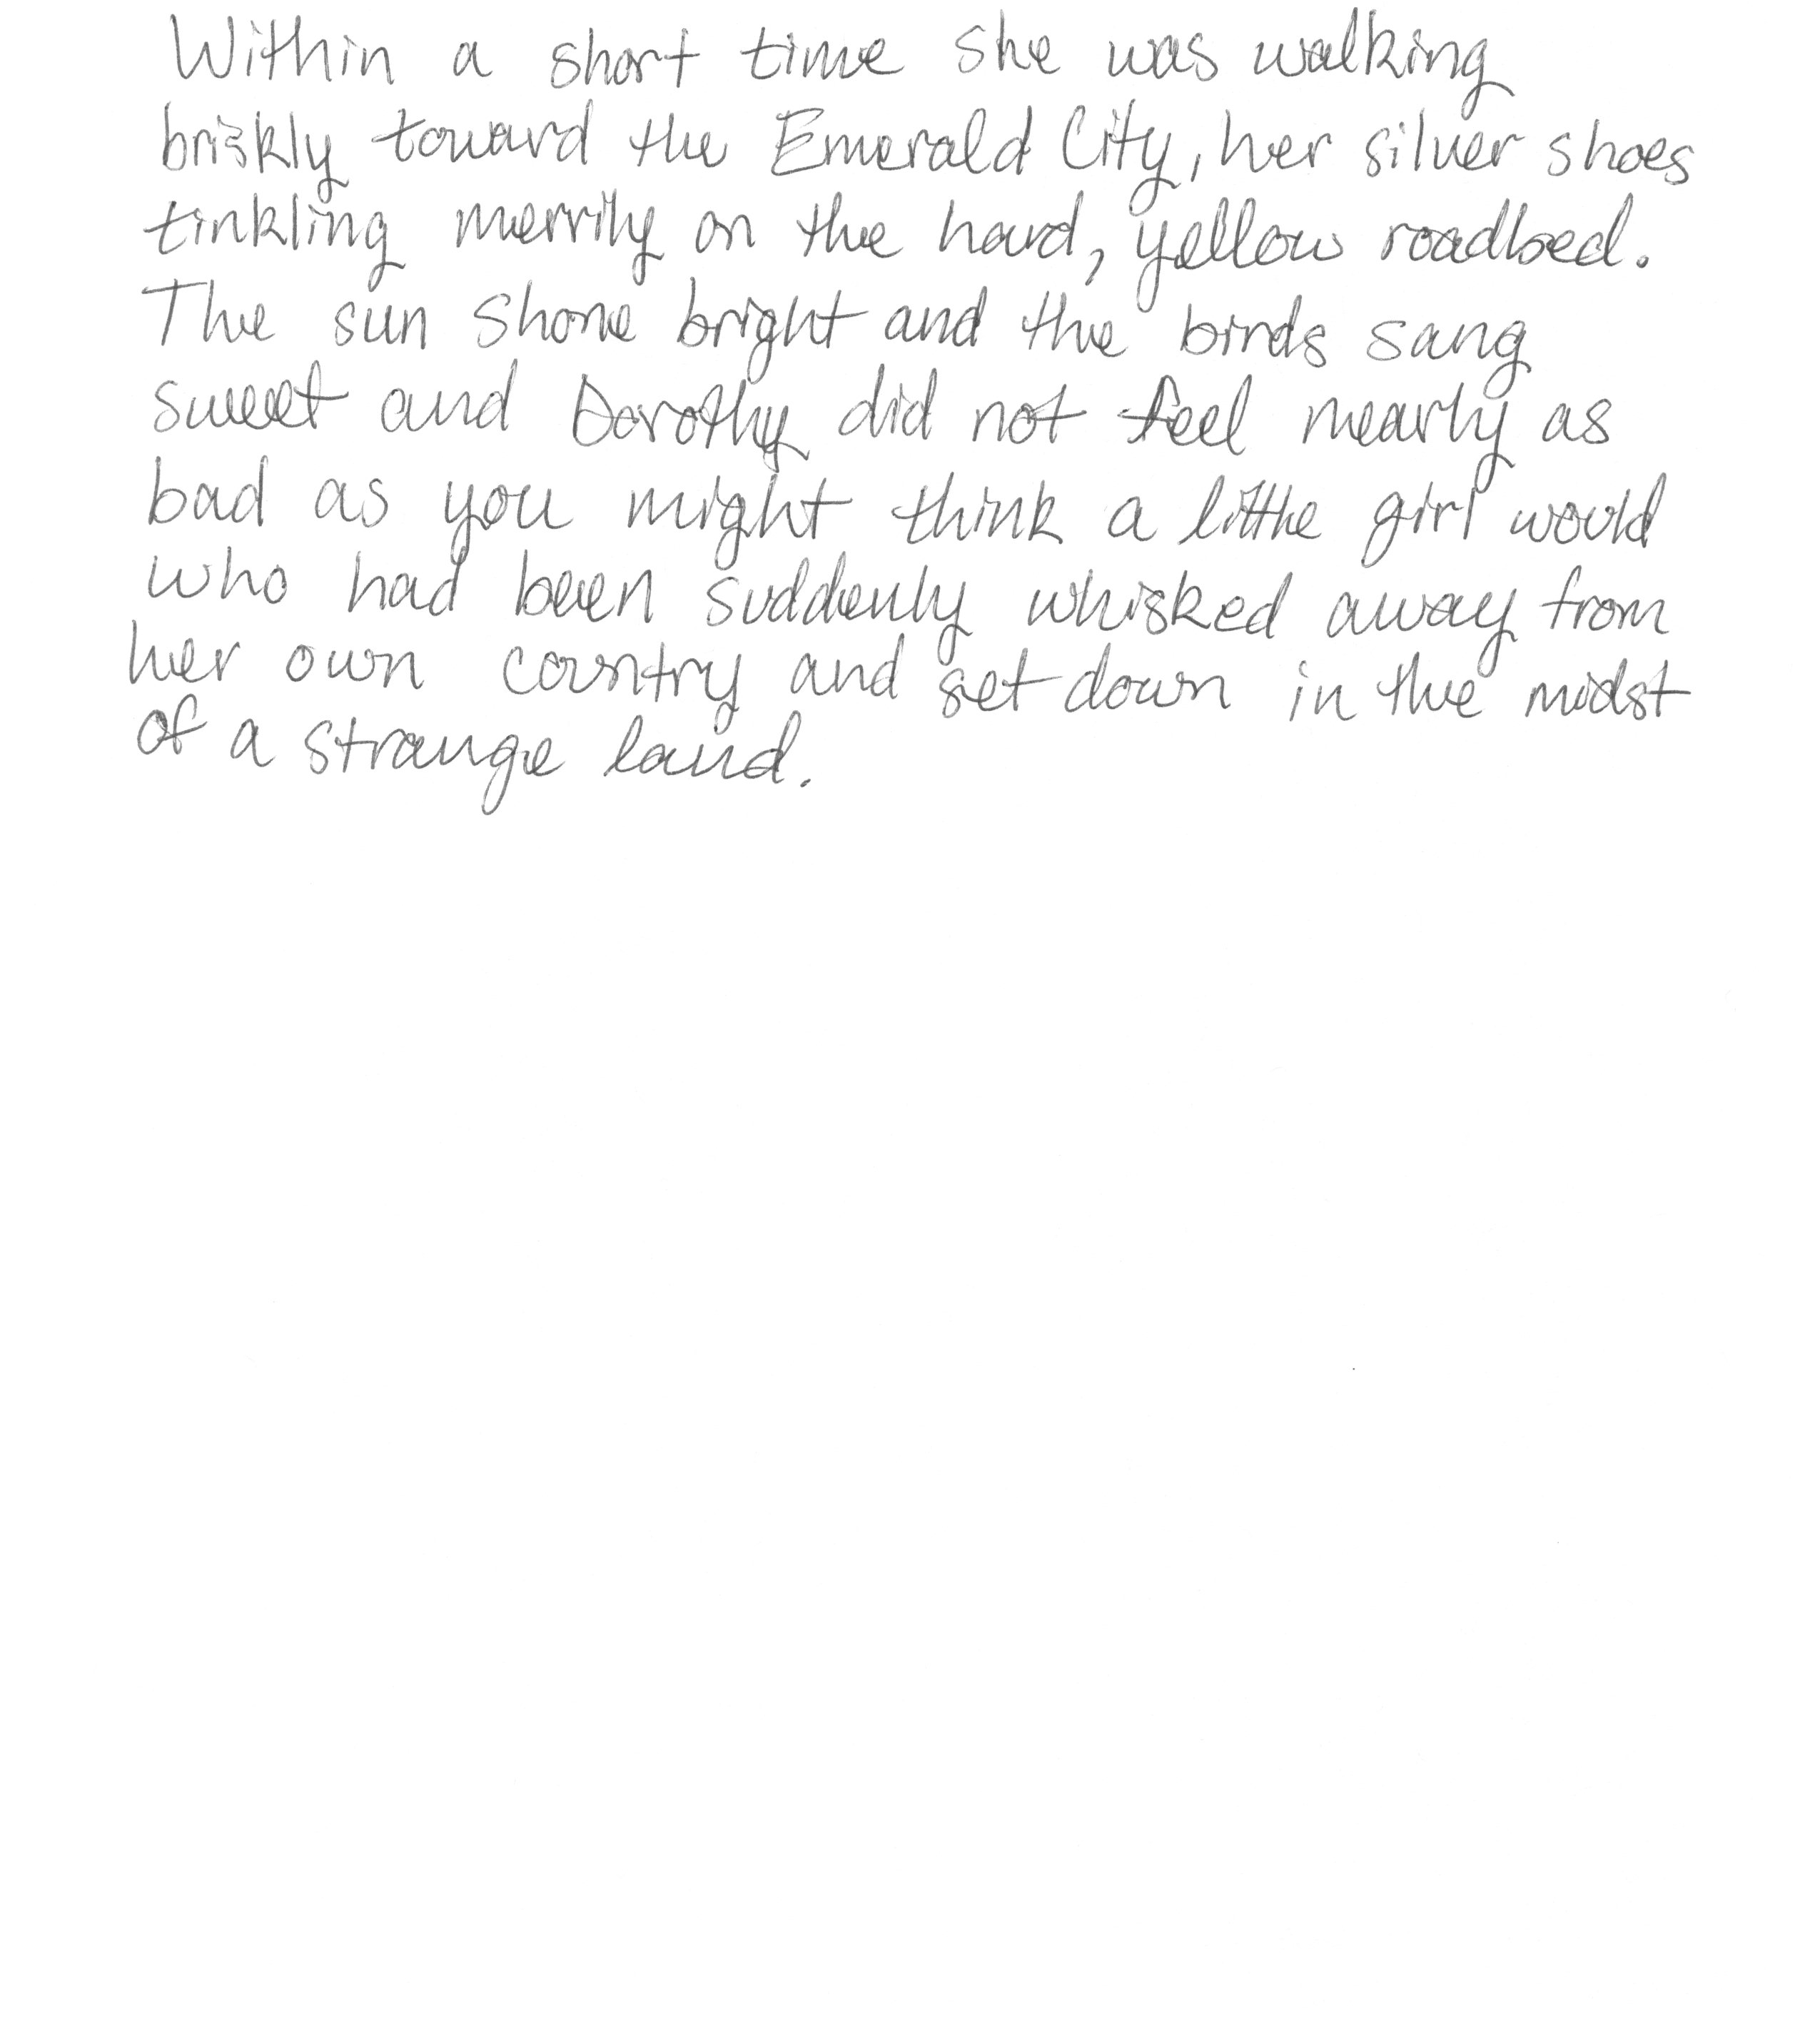 Within a short time she was walking
briskly toward the Emerald City, her silver shoes
tinkling merrily on the hard, yellow roadbed.
The sun shone bright and the birds sang
sweet and Dorothy did not feel nearly as
bad as you might think a little girl would
who had been suddenly whisked away from
her own country and set down in the midst
of a strange land.